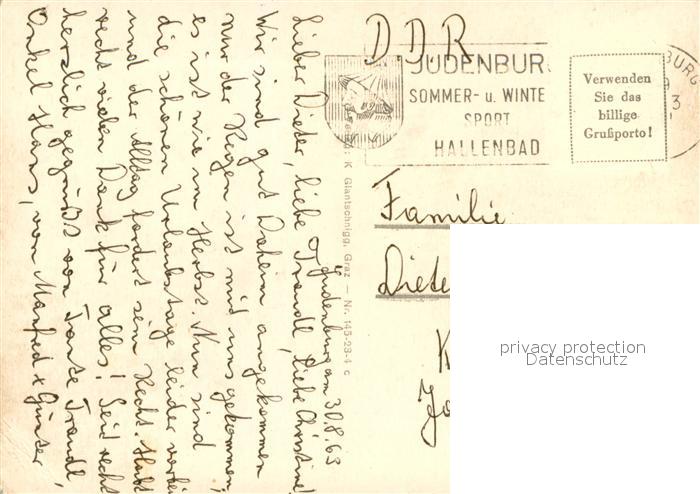 D D R
JUDENBURG
SOMMER- u. WINTE
SPORT
HALLENBAD
Verwenden
Sie das
billige
Grußporto!
BURG
3
Familie
Diete
K
Jo
privacy protection
Datenschutz
K. Glantschnigg, Graz — Nr. 145-23-4 c
Judenburg am 30.8.63
Lieber Dieter, liebe Traudl, liebe Christine!
Wir sind gut daheim angekommen
nur der Regen ist mit uns gekommen,
es ist wie im Herbst. Nun sind
die schönen Urlaubstage leider vorbei
und der Alltag fordert sein Recht. Habt
recht vielen Dank für alles! Seid recht
herzlich gegrüßt von Tante Traudl,
Onkel Hans, von Manfred + Günter,